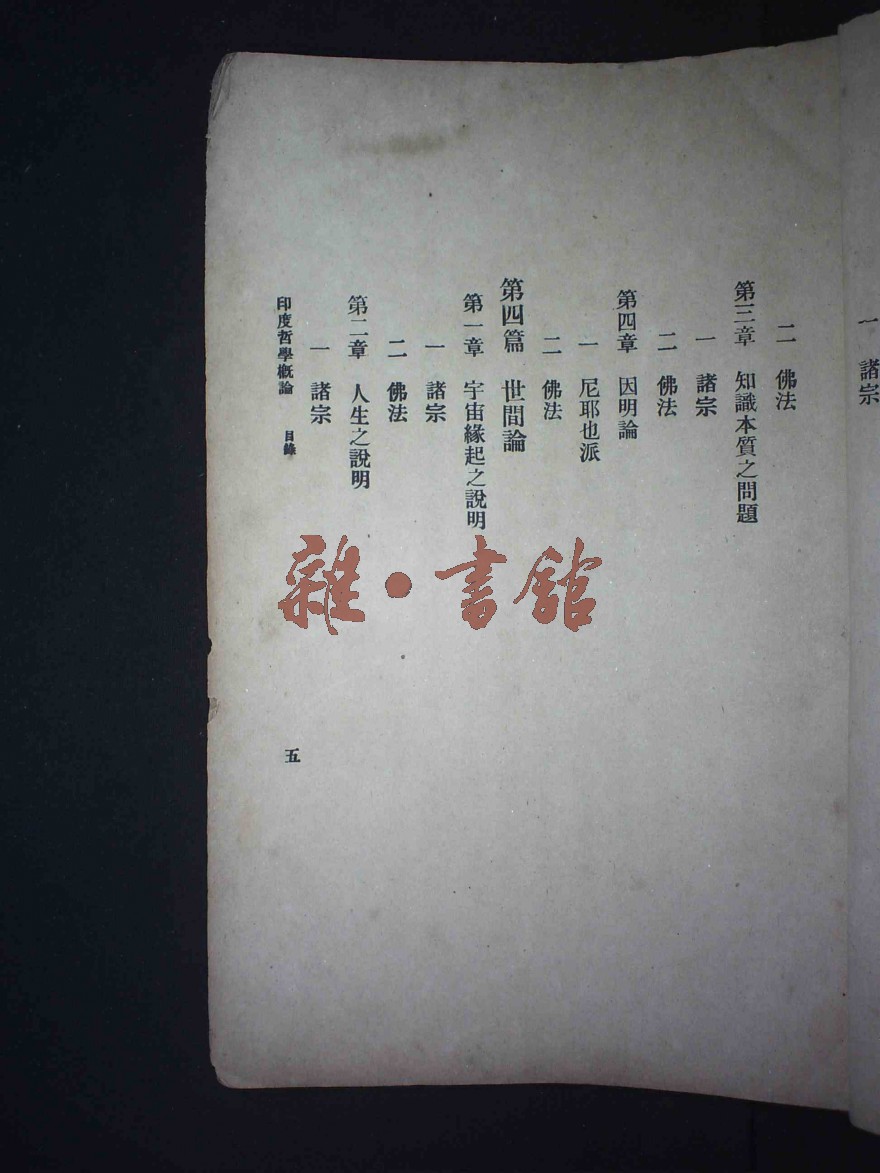 一 諸宗
二 佛法
第三章 知識本質之問題
一 諸宗
二 佛法
第四章 因明論
一 尼耶也派
二 佛法
第四篇 世間論
第一章 宇宙緣起之說明
一 諸宗
二 佛法
第二章 人生之說明
一 諸宗
印度哲學概論 目錄
五
雜·書館